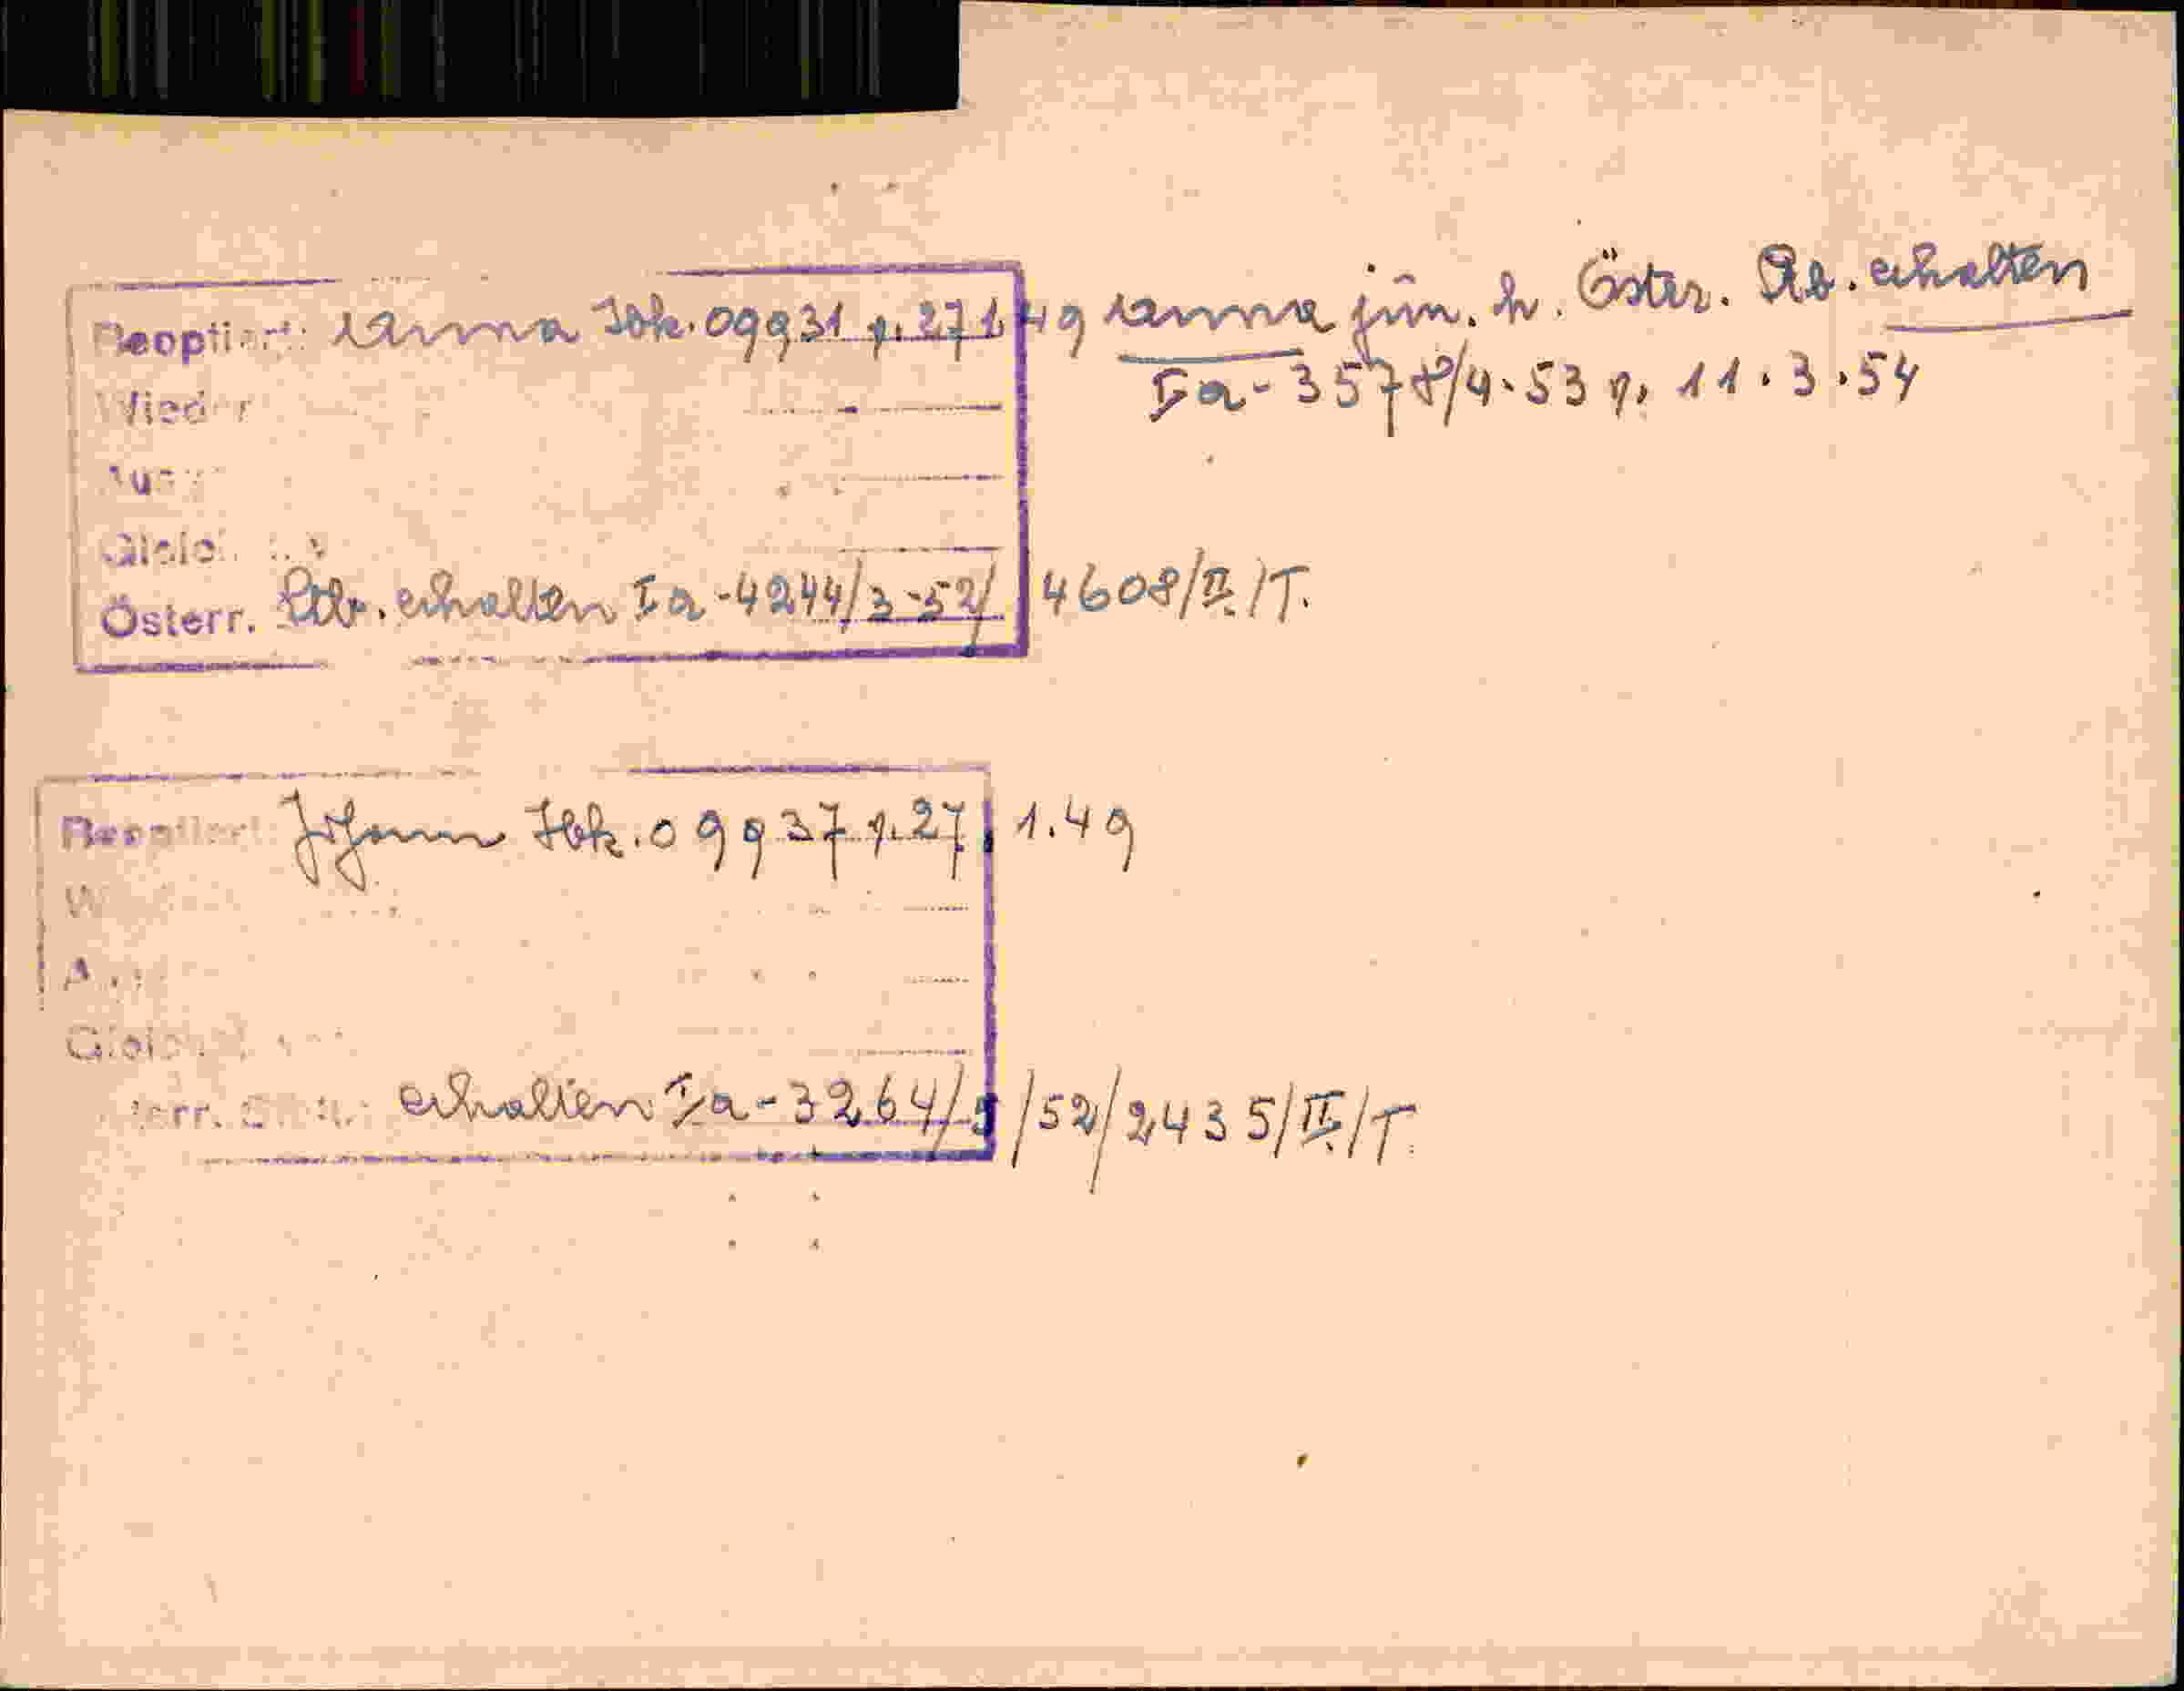 Reoptiert: Anna Jbk. 09931 v. 27.1.49 Anna jun. h. Öster. Stb. erhalten
Ia - 3578/4-53 v. 11.3.54
Wieder
Österr. Stb. erhalten Ia - 4244/3-52/4608/II./T.
Reoptiert: Johann Jbk. 09937 v. 27.1.49
erhalten Ia - 3264/5/52/2435/II./T.